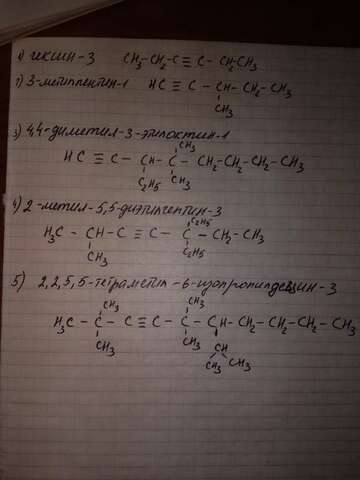 1) гексин-3 CH3-CH2-C≡C-CH2CH3
2) 3-метилпентин-1 HC≡C-CH-CH2-CH3
CH3
3) 4,4-диметил-3-этилоктин-1
CH3
HC≡C-CH-C-CH2-CH2-CH2-CH3
C2H5 CH3
4) 2-метил-5,5-диэтилгептин-3
C2H5
H3C-CH-C≡C-C-CH2-CH3
CH3 C2H5
5) 2,2,5,5-тетраметил-6-изопропилдецин-3
CH3 CH3
H3C-C-C≡C-C-CH-CH2-CH2-CH2-CH3
CH3 CH3 CH
CH3 CH3